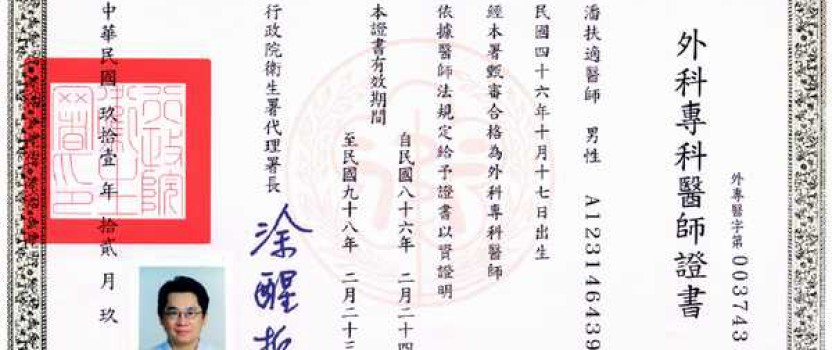 外專醫字第 003743
外科專科醫師證書
潘扶適醫師 男性 A123146439
民國四十六年十月十七日出生
經本署甄審合格為外科專科醫師
依據醫師法規定給予證書以資證明
本證書有效期間
自民國八十六年 二月二十四
至民國九十八年 二月二十三
行政院衛生署代理署長 涂醒
行政院衛生署印
中華民國玖拾壹年拾貳月玖